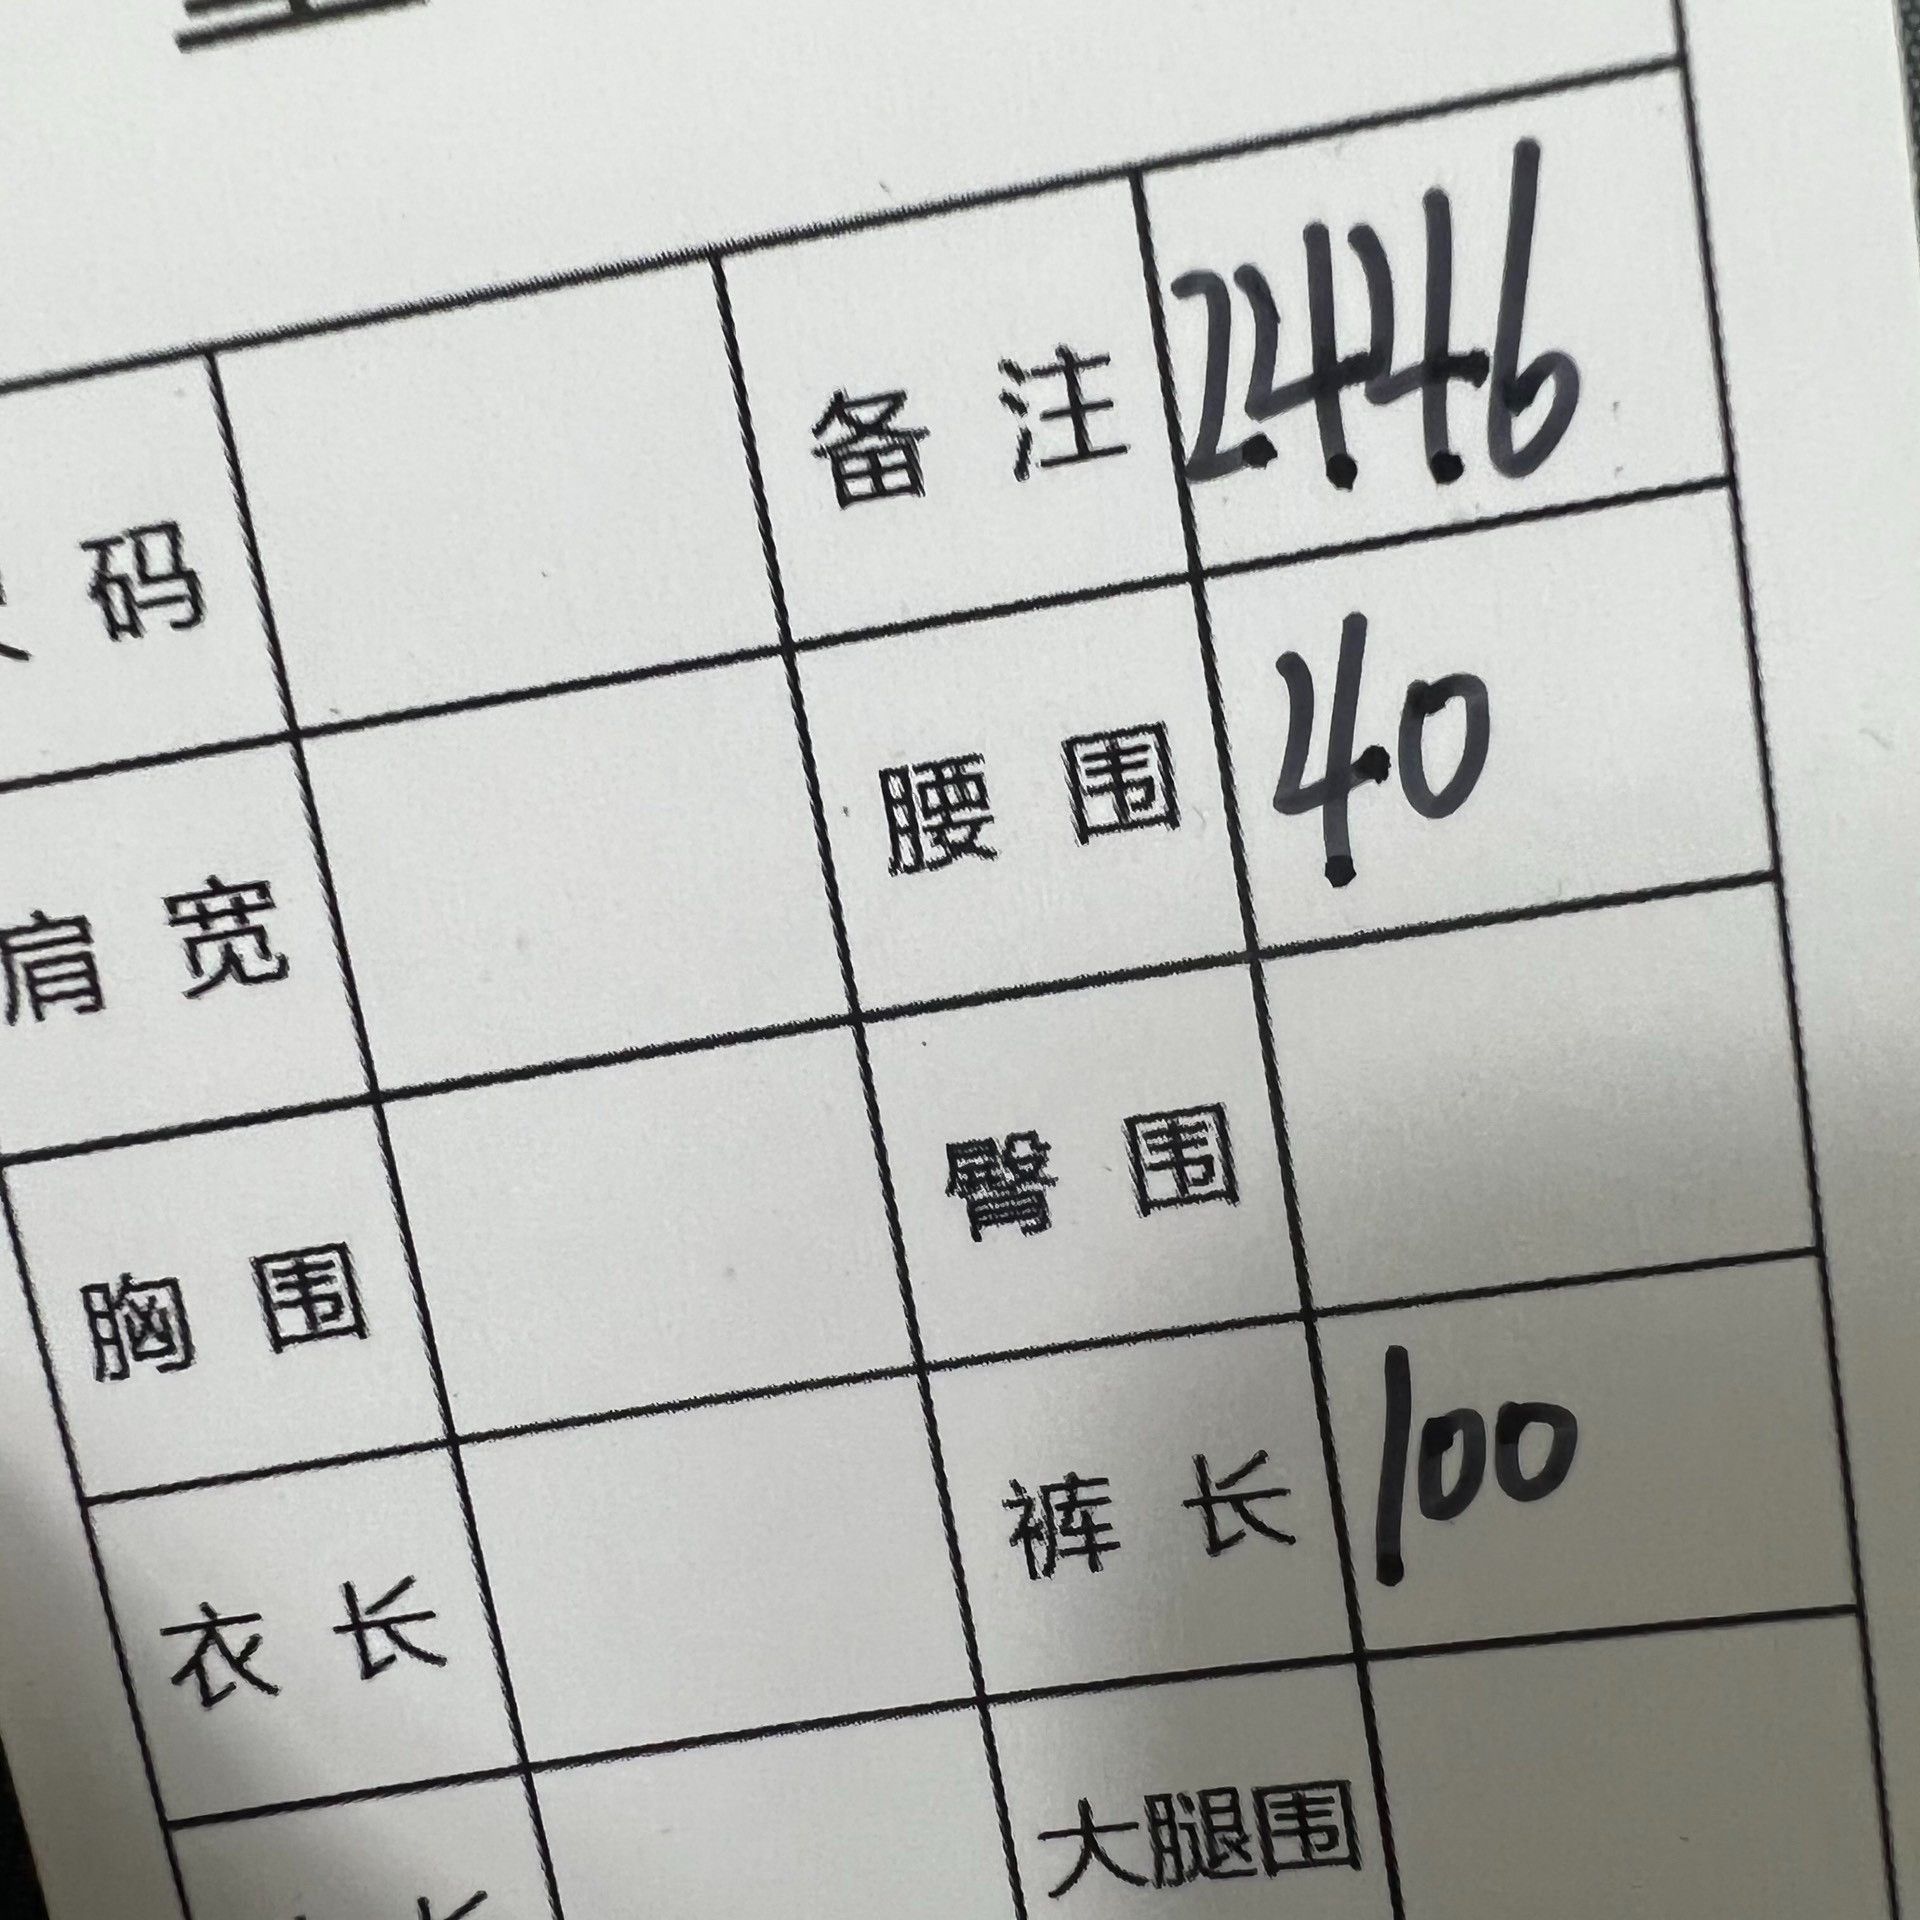 码 备注 2446
肩宽 腰围 40
胸围 臀围
衣长 裤长 100
大腿围